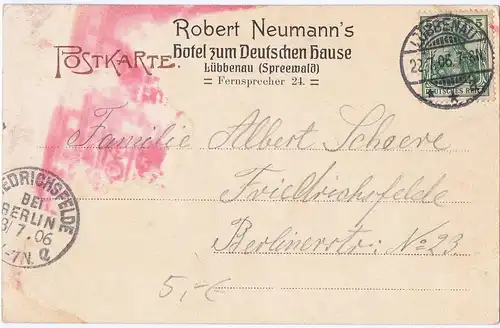 Robert Neumann's
POSTKARTE.
Hotel zum Deutschen Hause
Lübbenau (Spreewald)
Fernsprecher 24.
LÜBBENAU
06
DEUTSCHES REICH
Familie Albert Scheere
Friedrichsfelde
Berlinerstr: No 23
EDRICHSFELDE
BEI
BERLIN
3/7.06
-7N.
5,-€